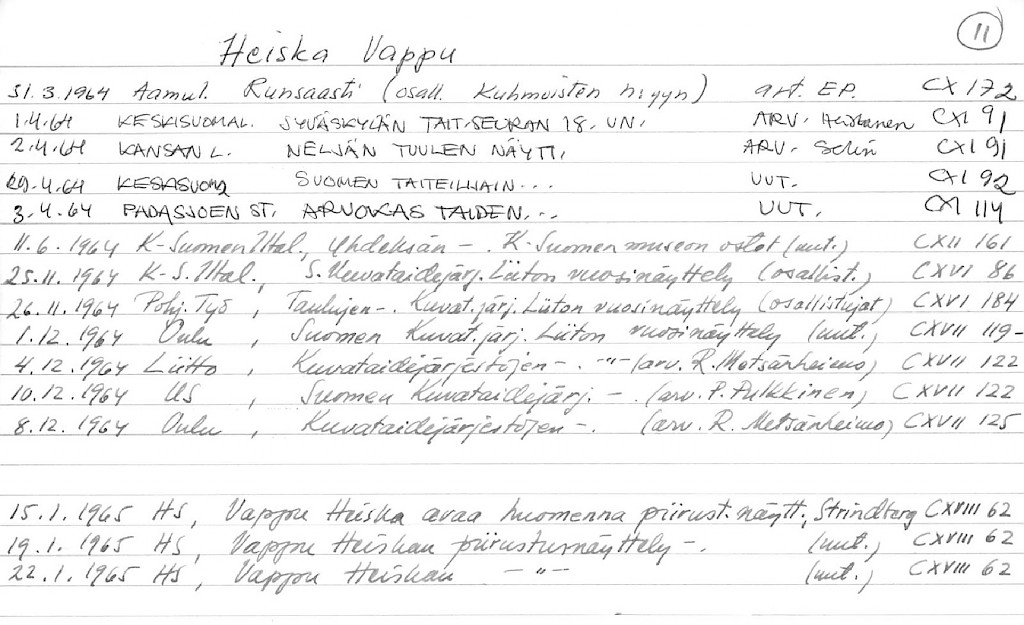 11
Heiska Vappu
31.3.1964 Aamul. Runsaasti (osall. Kuhmoisten n:yyn) art. EP. CX 172
1.4.64 KESKISUOMAL. JYVÄSKYLÄN TAIT.SEURAN 18. VN. ARV. Heiskanen CXI 91
2.4.64 KANSAN L. NELJÄN TUULEN NÄYTT. ARV. Selin CXI 91
29.4.64 SUOMEN TAITEILIJAIN... UUT. CXI 92
3.4.64 PADASJOEN ST. ARVOKAS TAIDEN... UUT. CXI 114
11.6.1964 K-Suomen Iltal., Yhdeksän -. K-Suomen museon ostot (uut.) CXII 161
25.11.1964 K-S. Iltal., S. Kuvataidejärj. Liiton vuosinäyttely (osallist.) CXVI 86
26.11.1964 Pohj. Työ, Taulujen-. Kuvat.järj. Liiton vuosinäyttely (osallistujat) CXVI 184
1.12.1964 Oulu, Suomen Kuvat.järj. Liiton vuosinäyttely (uut.) CXVII 119-
4.12.1964 Liitto, Kuvataidejärjestöjen -. -"- (arv. R. Metsänheimo) CXVII 122
10.12.1964 US, Suomen Kuvataidejärj. -. (arv. P. Pulkkinen) CXVII 122
8.12.1964 Oulu, Kuvataidejärjestöjen -. (arv. R. Metsänheimo) CXVII 125
15.1.1965 HS, Vappu Heiska avaa huomenna piirust.näytt., Strindberg CXVIII 62
19.1.1965 HS, Vappu Heiskan piirustusnäyttely -. (uut.) CXVIII 62
22.1.1965 HS, Vappu Heiskan -"- (uut.) CXVIII 62